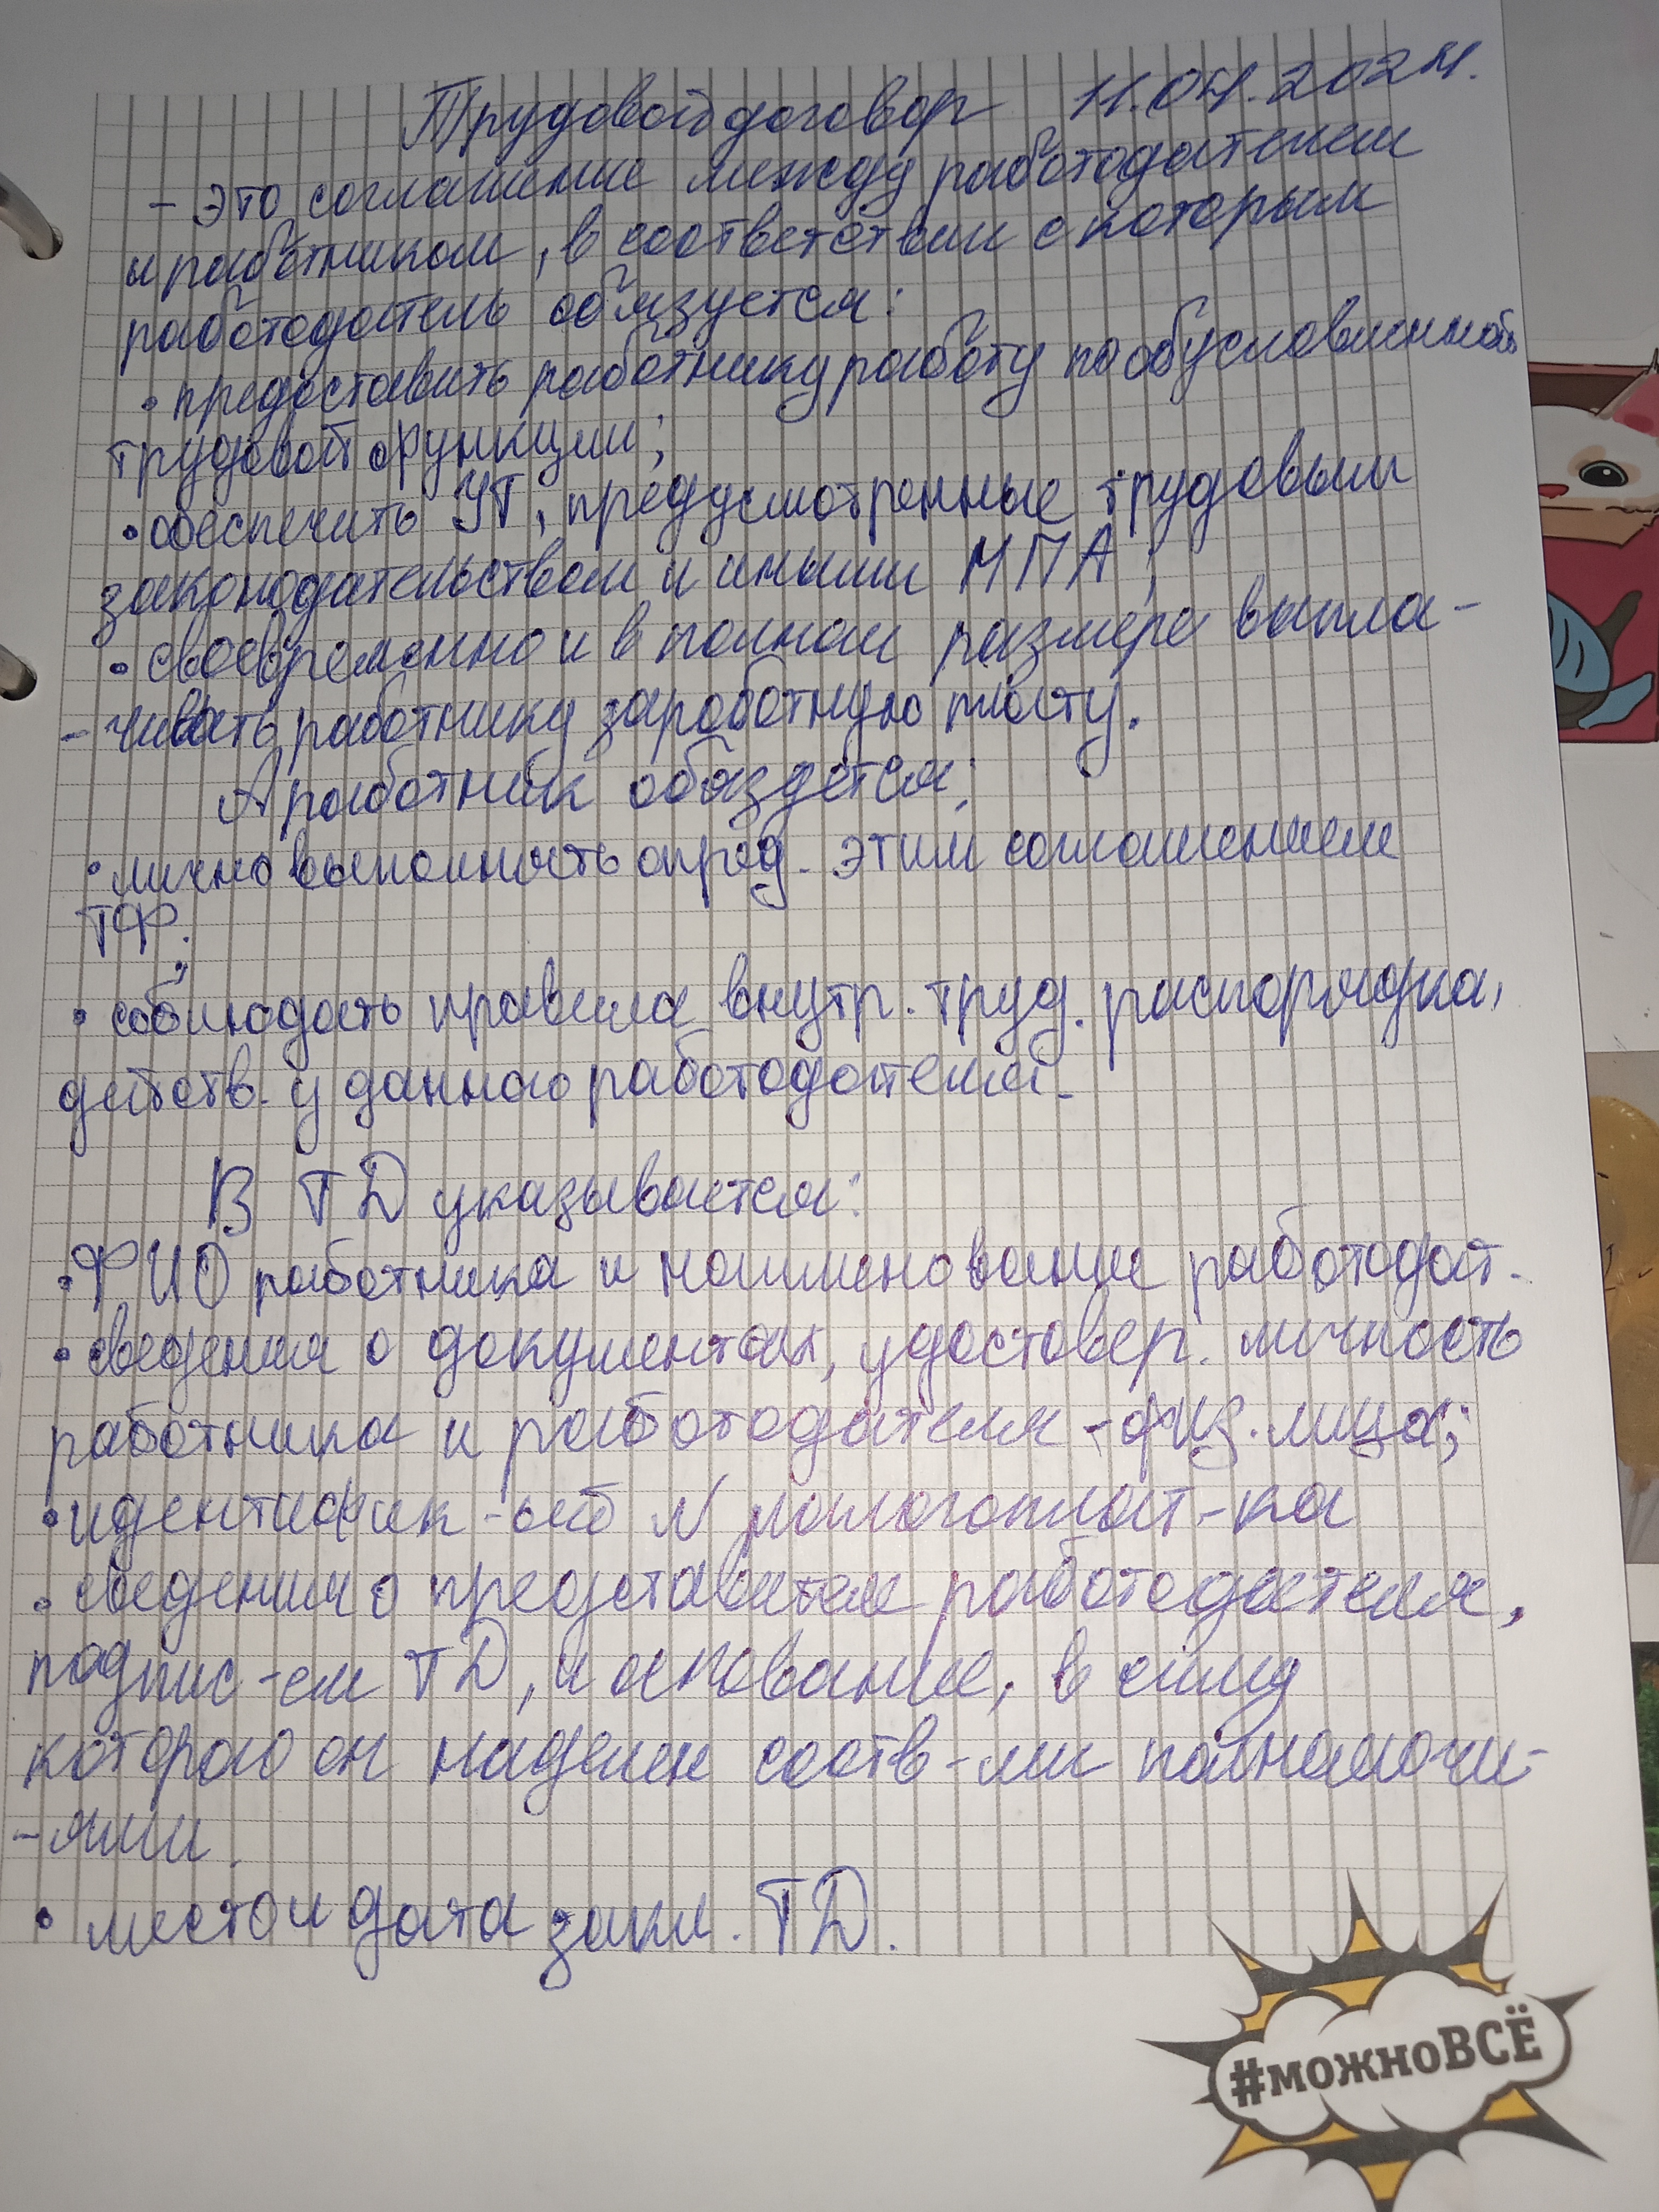 Трудовой договор 11.04.2024.
- это соглашение между работодателем
и работником, в соответствии с которым
работодатель обязуется:
• предоставить работнику работу по обусловленной
трудовой функции;
• обеспечить УТ, предусмотренные трудовым
законодательством и иными НПА;
• своевременно и в полном размере выпла-
-чивать работнику заработную плату.
А работник обязуется:
• лично выполнять опред. этим соглашением
ТФ;
• соблюдать правила внутр. труд. распорядка,
действ. у данного работодателя.
В ТД указывается:
• ФИО работника и наименование работодат.
• сведения о документах, удостовер. личность
работника и работодателя - физ. лица;
• идентифик-ый N налогоплат-ка
• сведения о представителе работодателя,
подпис-ем ТД, и основание, в силу
которого он наделен соотв-ми полномочи-
-ями.
• место и дата закл. ТД.
#можноВСЁ